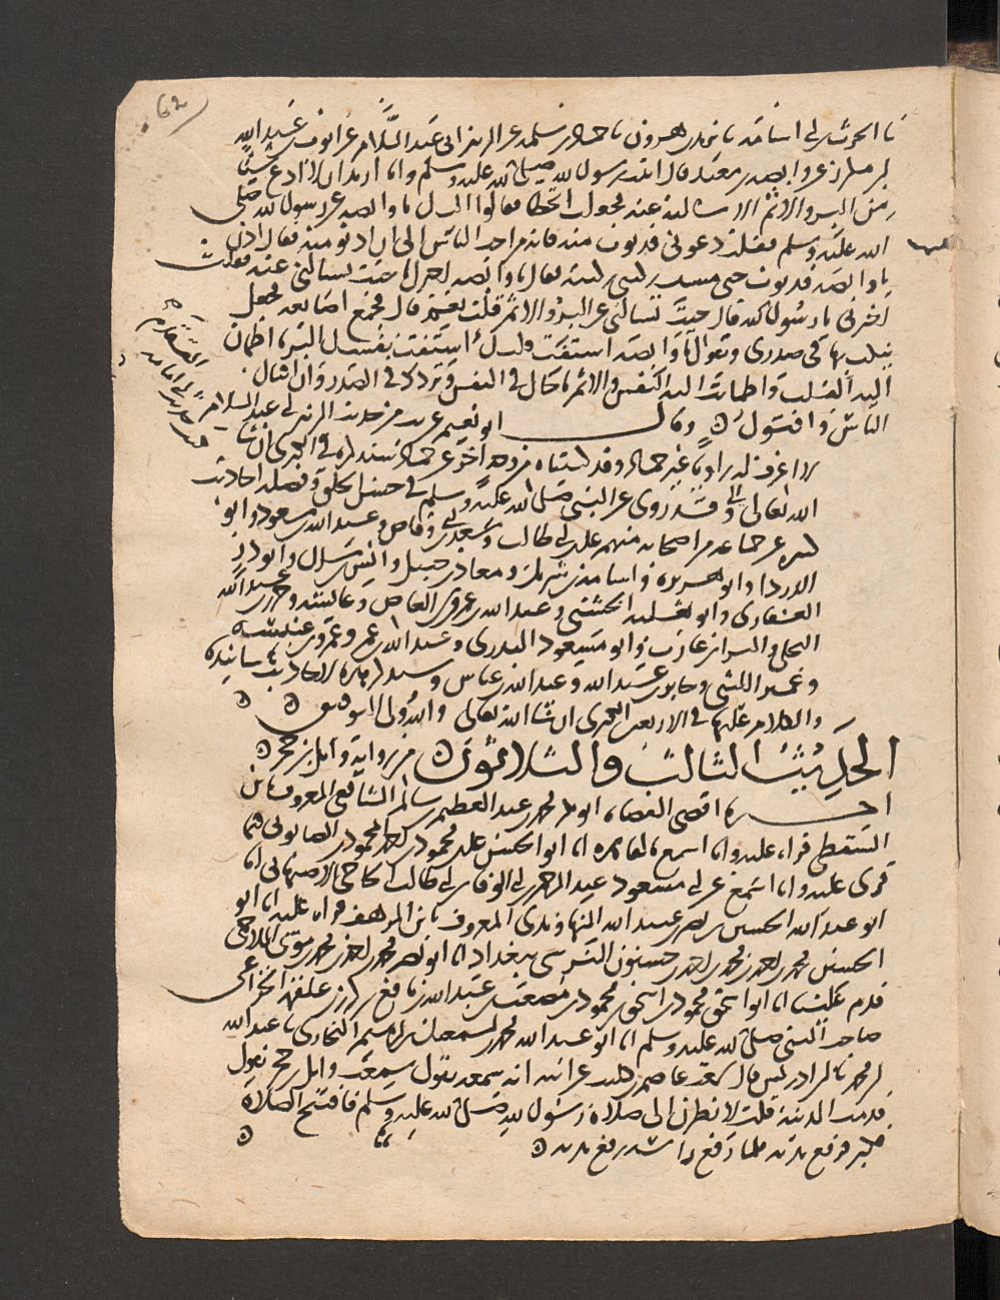 62
نا الحرث بن ابي اسامة نا يزيد بن هرون نا حماد بن سلمة عن الزبير ابي عبد السلام عن ايوب بن عبد الله
بن مكرز عن وابصة بن معبد قال اتيت رسول الله صلى الله عليه وسلم وانا اريد ان لا ادع شيئا
من البر والاثم الا سالته عنه فجعلت اتخطا فقالوا اليك يا وابصة عن رسول الله صلى
الله عليه وسلم فقلت دعوني فادنوا منه فانه من احب الناس الي ان ادنو منه فقال ادن
يا وابصة فدنوت حتى مست ركبتي ركبته فقال يا وابصة اخبرك ما جئت تسالني عنه فقلت
اخبرني يا رسول الله قال جئت تسالني عن البر والاثم قلت نعم قال فجمع اصابعه فجعل
ينكت بها في صدري ويقول يا وابصة استفت قلبك استفت نفسك البر ما اطمان
اليه القلب واطمانت اليه النفس والاثم ما حاك في النفس وتردد في الصدر وان افتاك
الناس وافتوك وقال ابو نعيم غريب من حديث الزبير ابي عبد السلام
لا اعرف له راويا غير حماد وقد كتبناه من وجه اخر عن حماد
الله تعالى وقد روى عن النبي صلى الله عليه وسلم في حسن الخلق وفضله احاديث
كثيرة عن جماعة من اصحابه منهم علي بن ابي طالب وسعد بن ابي وقاص وعبد الله بن مسعود وابو
الدرداء وابو هريرة واسامة بن شريك ومعاذ بن جبل وانس بن مالك وابو ذر
الغفاري وابو ثعلبة الخشني وعبد الله بن عمرو بن العاص وعائشة وجرير بن عبد الله
البجلي والبراء بن عازب وابو مسعود البدري وعبد الله بن عمر وعمرو بن عبسة
وعمير الليثي وجابر بن عبد الله وعبد الله بن عباس هذه الاحاديث باسانيدها
والكلام عليها في الاربعين ان شا الله تعالى والله ولي التوفيق
الحديث الثالث والثلاثون من رواية وائل بن حجر
اخبرنا اقضى القضاة ابو محمد بن عبد العظيم بن سالم الشافعي المعروف بابن
السقطي قراءة عليه وانا اسمع بالقاهرة انا ابو الحسن علي بن محمود بن احمد المحمودي الصابوني فيما
قرئ عليه وانا اسمع عن ابي مسعود عبد الرحيم بن ابي الوفا بن ابي طالب الحاجي الاصبهاني انا
ابو عبد الله الحسين بن نصر بن عبيد الله النهاوندي المعروف بابن المرهف قراءة عليه انا ابو
الحسين محمد بن احمد بن محمد بن احمد بن حسنون النرسي ببغداد انا ابو نصر محمد بن احمد بن محمد بن موسى الملاحمي
قدم علينا انا ابو اسحق محمود بن اسحق بن محمود بن مصعب بن عبد الله بن نافع بن كرز بن علقمة الخزاعي
صاحب النبي صلى الله عليه وسلم انا ابو عبد الله محمد بن اسمعيل بن ابراهيم البخاري نا عبد الله
بن محمد نا ابن ادريس قال سمعت عاصم بن كليب عن ابيه انه سمعه يقول سمعت وائل بن حجر يقول
قدمت المدينة قلت لانظرن الى صلاة رسول الله صلى الله عليه وسلم فافتتح الصلاة
فكبر فرفع يديه فلما رفع راسه رفع يديه